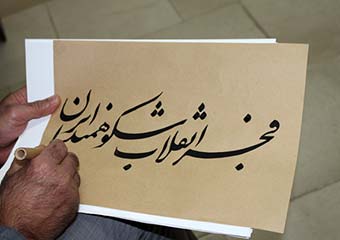 فجر انقلاب شکوهمند ایران